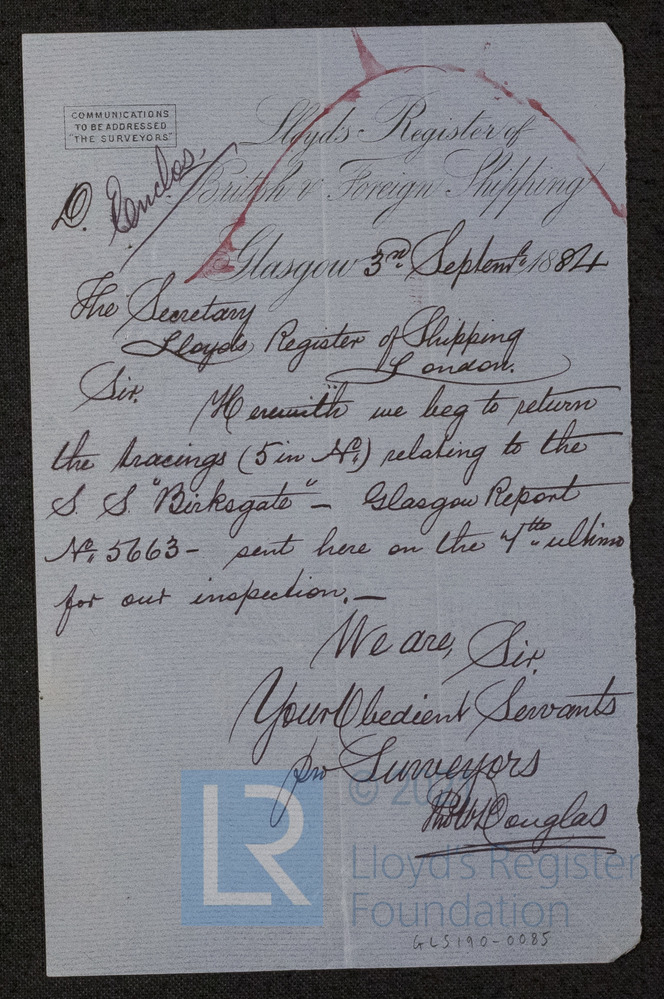 COMMUNICATIONS
TO BE ADDRESSED
"THE SURVEYORS"
D. Enclos.
Lloyds Register of
British & Foreign Shipping
Glasgow 3rd Septemr 1884
The Secretary
Lloyds Register of Shipping
London.
Sir.
Herewith we beg to return
the tracings (5 in No.) relating to the
S. S. "Birksgate" — Glasgow Report
No. 5663 - sent here on the 4th ultimo
for our inspection. —
We are, Sir,
Your Obedient Servants
pro Surveyors
Douglas
LR
© 20
Lloyd's Register
Foundation
GLS190-0085